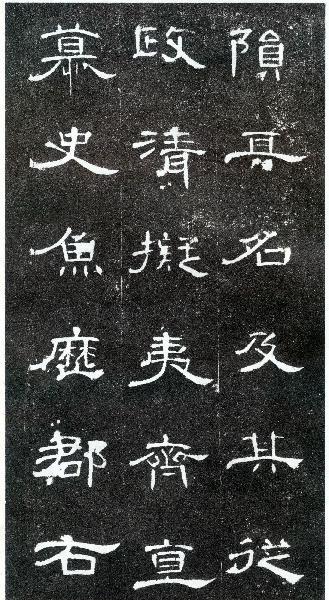 隕其名及其從
政清擬夷齊直
慕史魚歷郡右